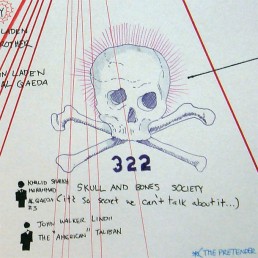 LADEN
ROTHER
N LADEN
AL QAEDA
322
KHALID SHAIKH
MOHAMMED
AL QAEDA
#3
SKULL AND BONES SOCIETY
(it's so secret we can't talk about it...)
JOHN WALKER LINDH
THE "AMERICAN" TALIBAN
"THE PRETENDER